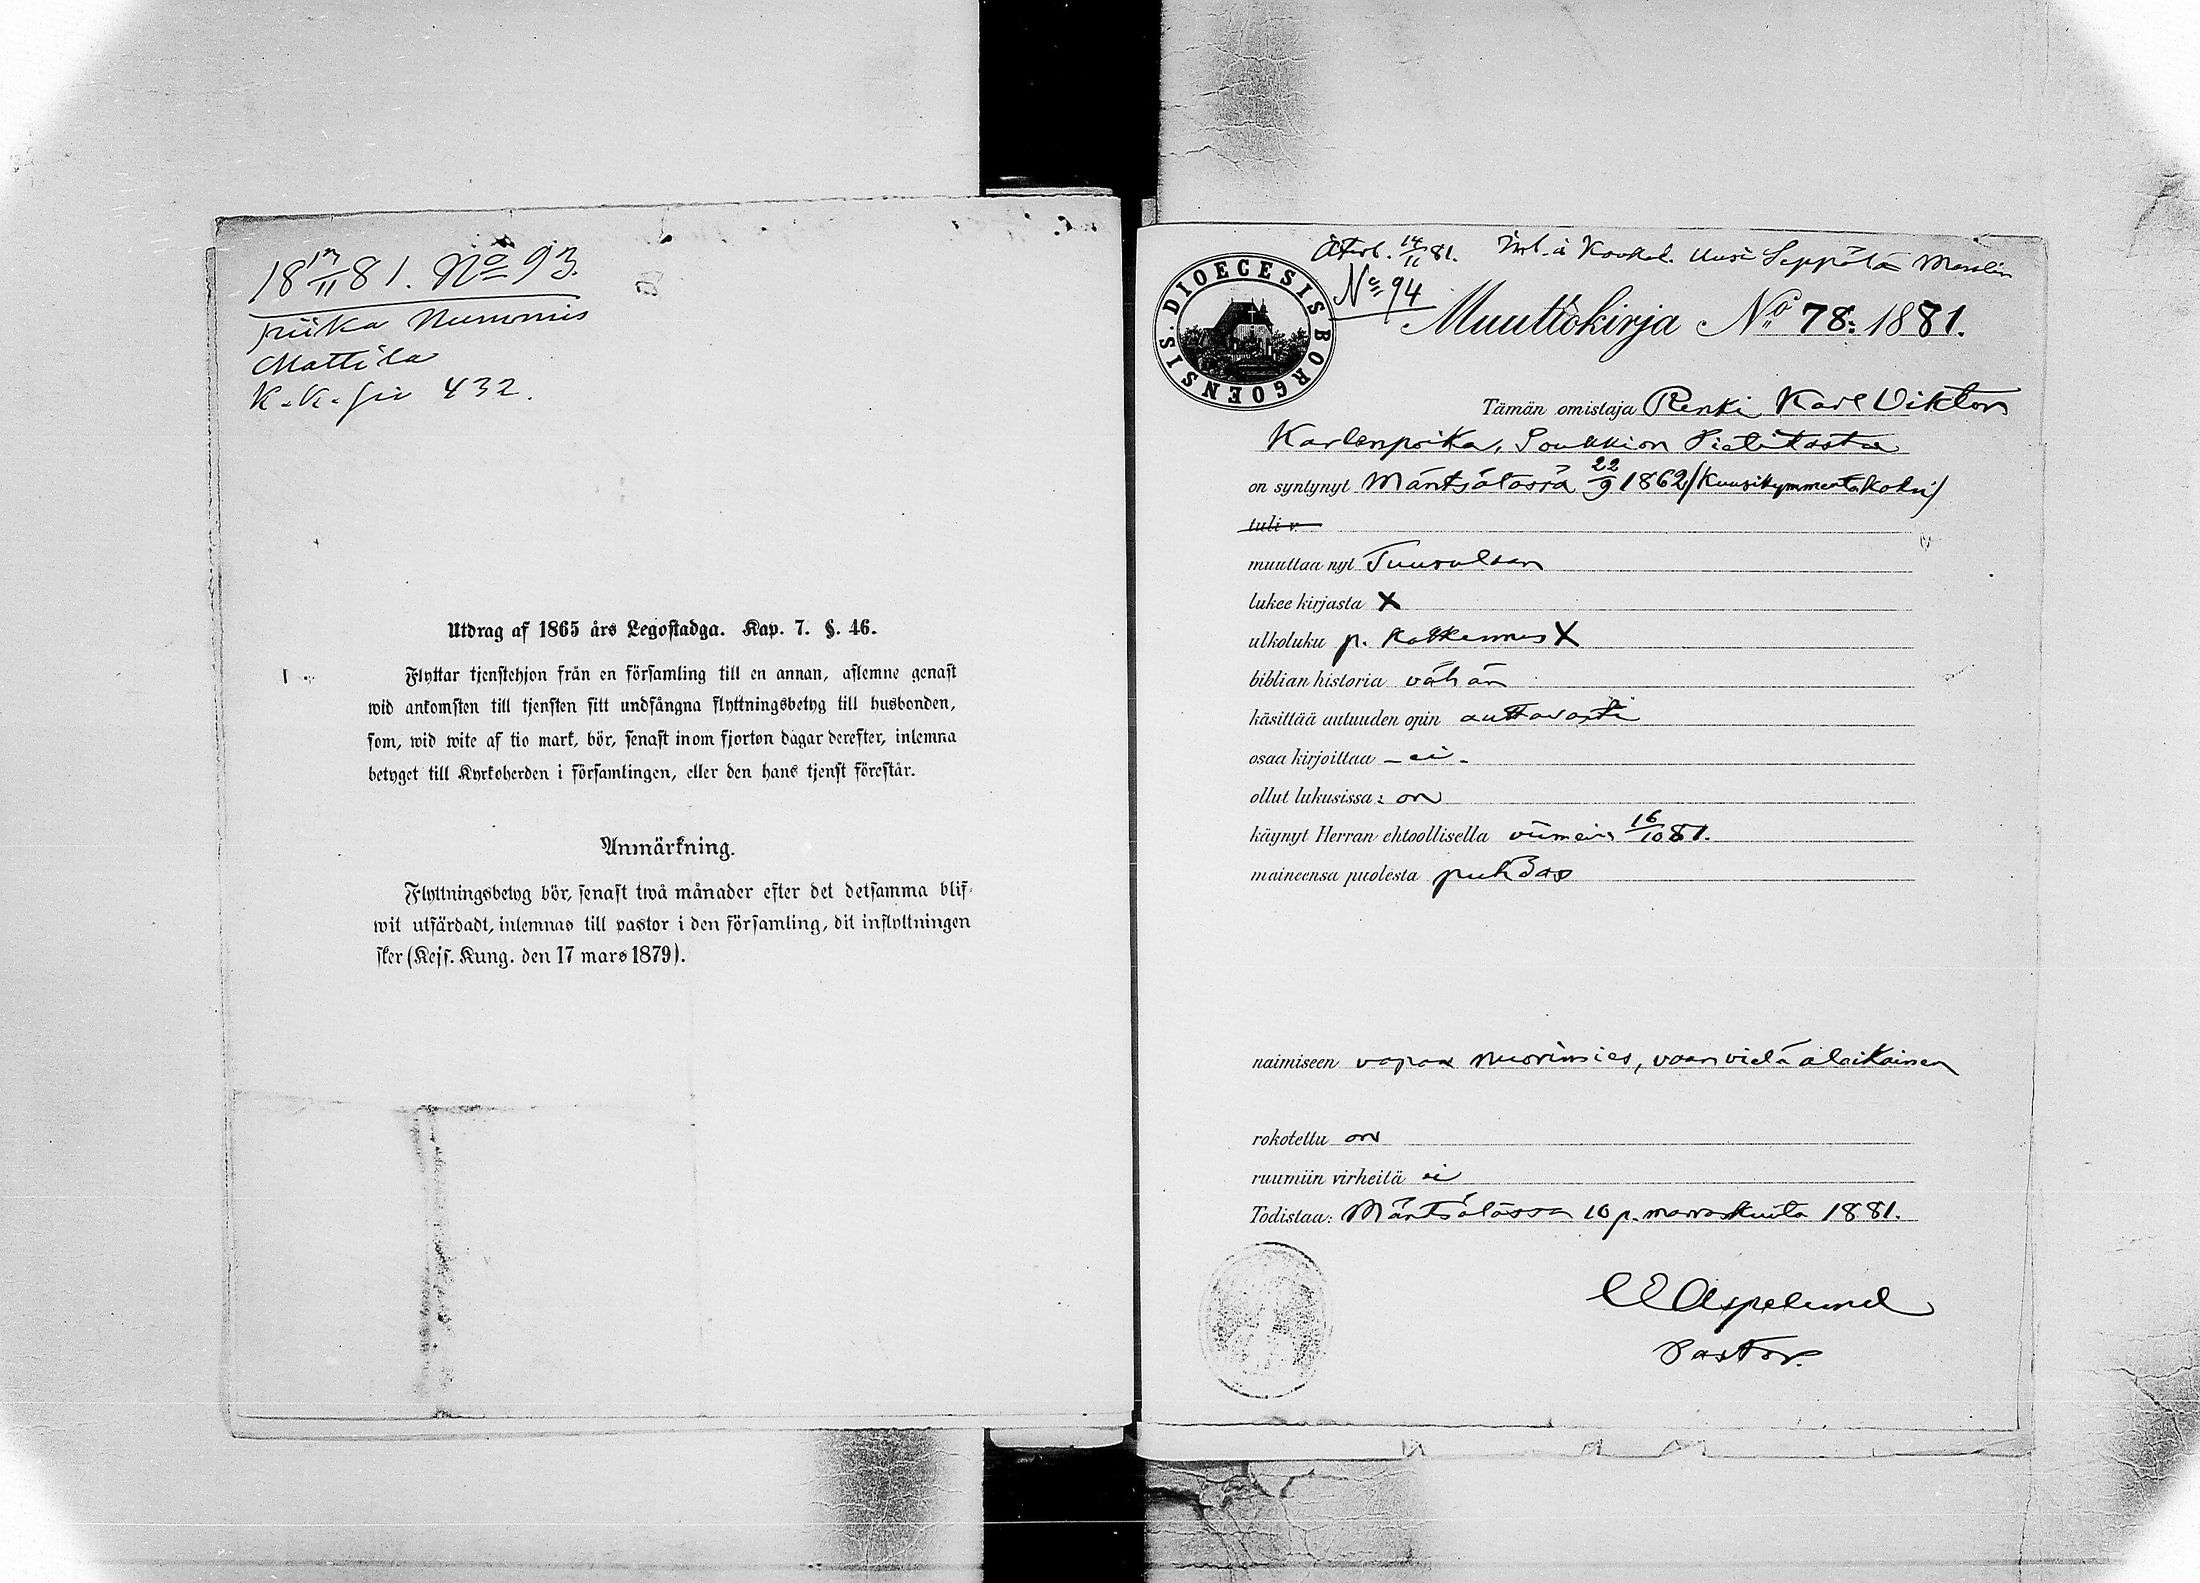 18 13/11 81. No 93.
piika Nummis
Mattila
K.K. 432.
Utdrag af 1865 års Legostadga. Kap. 7. §. 46.
Flyttar tjenstehjon från en församling till en annan, aflemne genast
wid ankomsten till tjensten sitt undfångna flyttningsbetyg till husbonden,
som, wid wite af tio mark, bör, senast inom fjorton dagar derefter, inlemna
betyget till Kyrkoherden i församlingen, eller den hans tjenst förestår.
Anmärkning.
Flyttningsbetyg bör, senast twå månader efter det detsamma blif-
wit utfärdadt, inlemnas till pastor i den församling, dit inflyttningen
sker (Kejs. Kung. den 17 mars 1879).
14/11 81. Uusi Seppälä
No 94
S. DIOECESIS BORGOENSIS
Muuttokirja No 78: 1881.
Tämän omistaja Renki Karl Viktor
Karlenpoika, Soukkion
on syntynyt Mäntsälässä 22/9 1862 /Kuusikymmentäkaksi/
tuli v.
muuttaa nyt Tuusulaan
lukee kirjasta X
ulkoluku p. katkennus X
biblian historia vähän
käsittää autuuden opin auttavasti
osaa kirjoittaa - ei -
ollut lukusissa: on
käynyt Herran ehtoollisella viimeis 16/10 81.
maineensa puolesta puhdas
naimiseen vapaa nuorimies, vaan vielä alaikäinen
rokotettu on
ruumiin virheitä ei
Todistaa: Mäntsälässä 10 p. marraskuuta 1881.
Aspelund
Pastor.